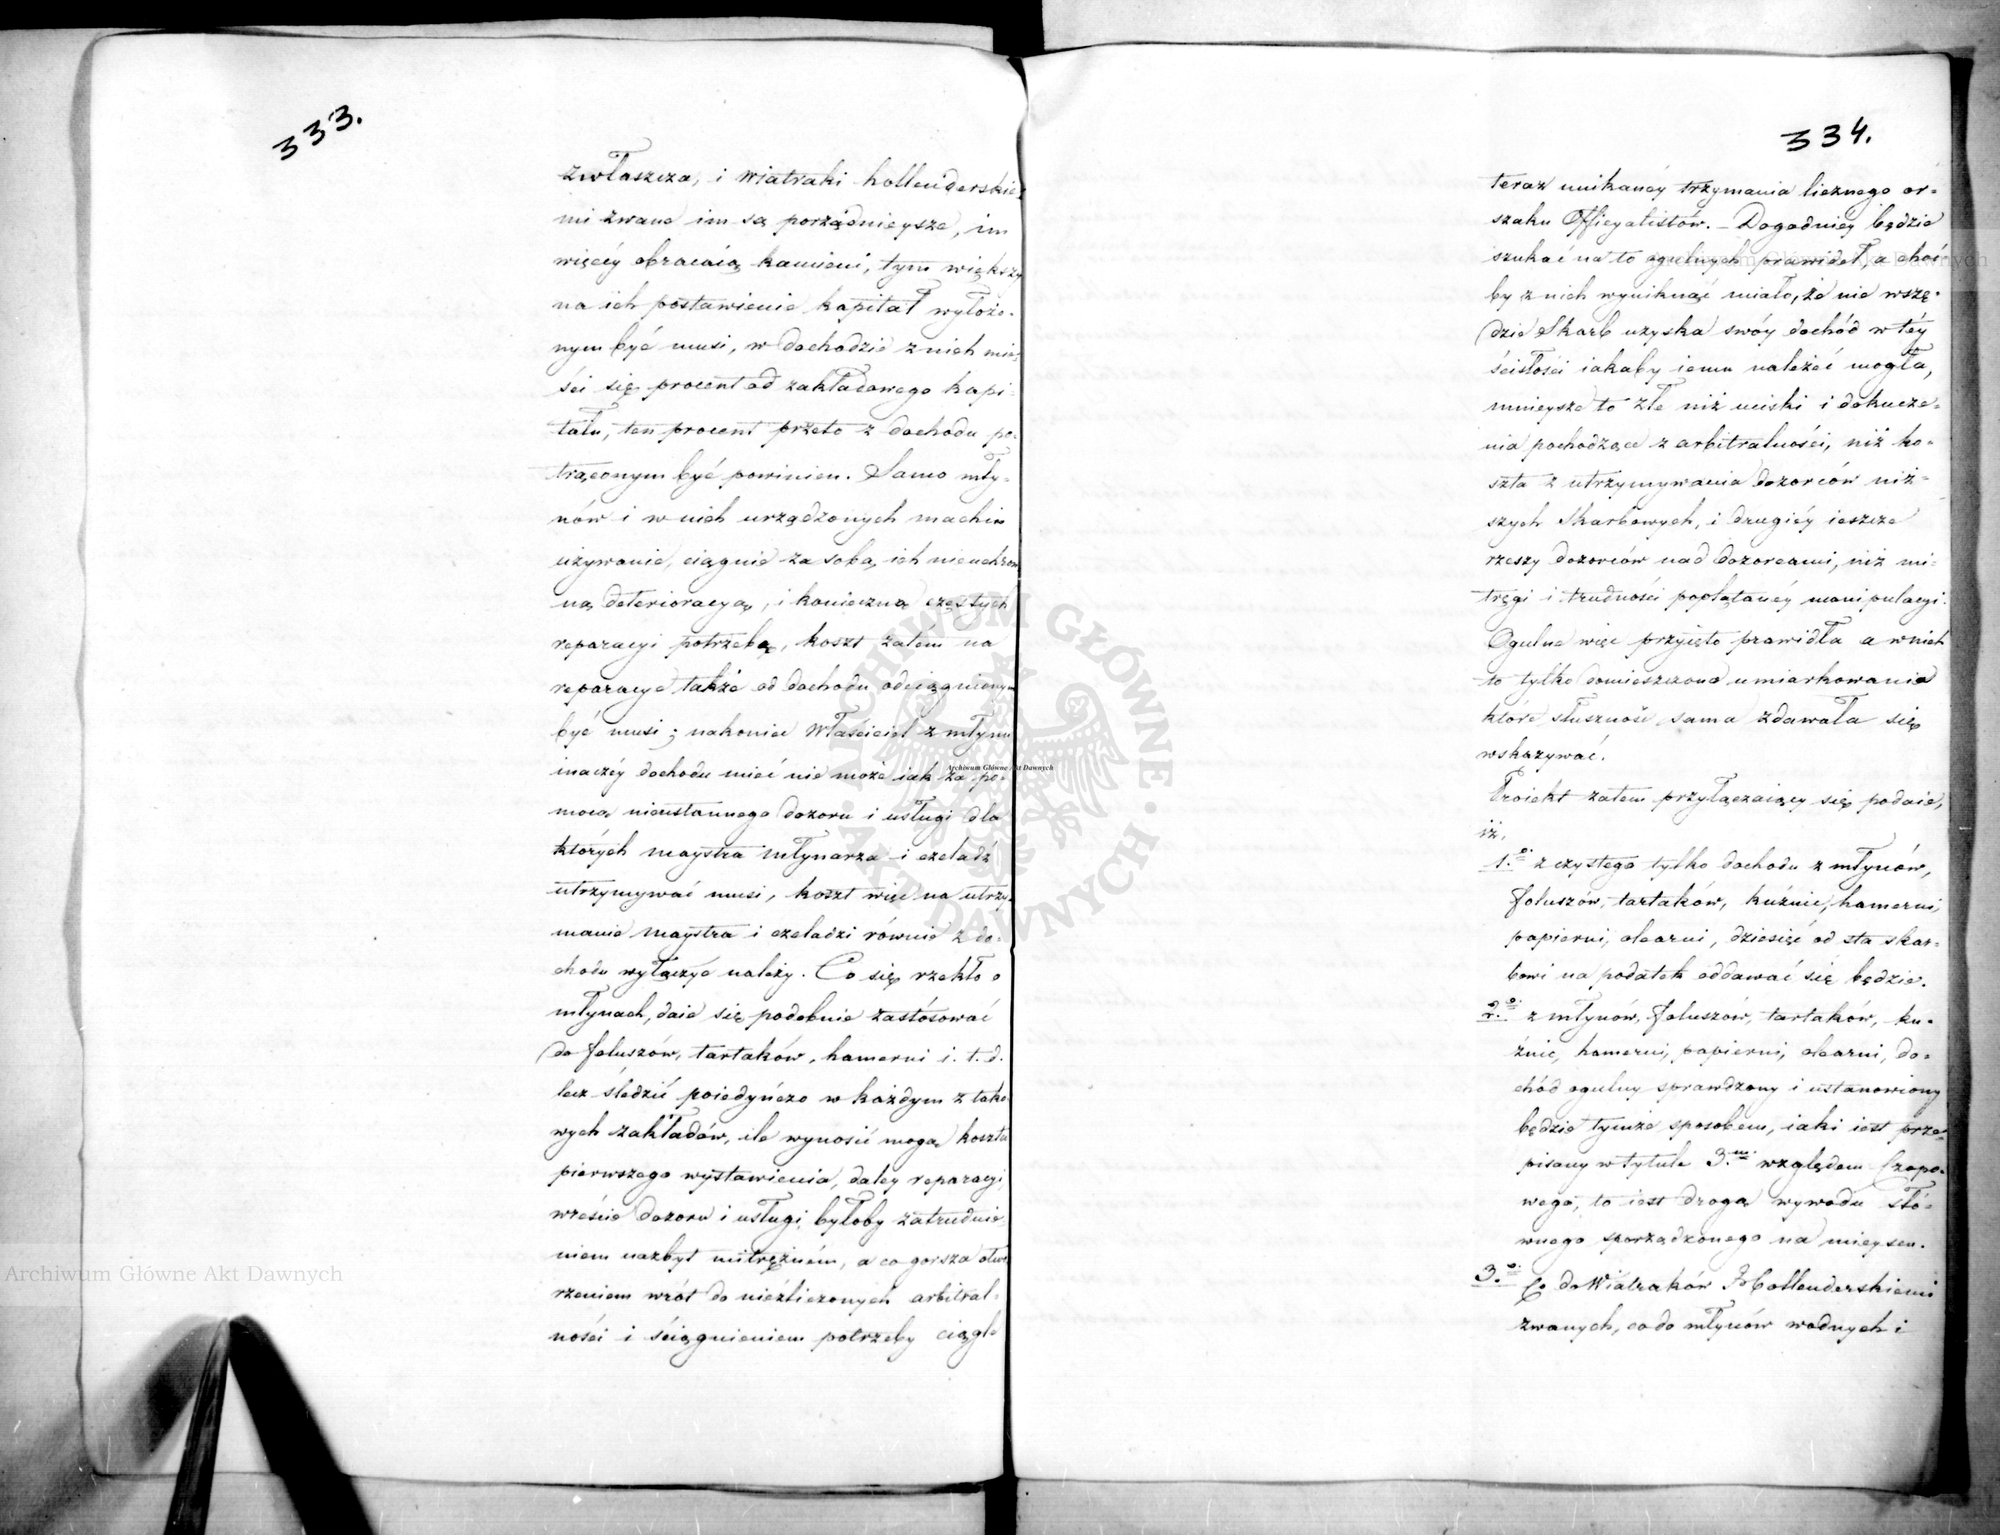 333.
zwłaszcza, i wiatraki hollenderskie
mi zwane im są porządnieysze, im
więcéy obracaią kamieni, tym większy
na ich postawienie kapitał wyłożo-
nym być musi, w dochodzie z nich mie
ści się procent od zakładowego kapi-
tału, ten procent przeto z dochodu po-
trąconym być powinien. Samo mły-
nów i w nich urządzonych machin
używanie, ciągnie za sobą ich nieuchron
ną deterioracyą, i konieczną częstych
reparacyi potrzebę, koszt zatem na
reparacye także od dochodu odciągnionym
być musi; nakoniec Właściciel z młyna
inaczéy dochodu mieć nie może iak za po-
mocą nieustannego dozoru i usługi dla
których maystra młynarza i czeladź
utrzymywać musi, koszt więc na utrzy-
manie maystra i czeladzi równie z do-
chodu wyłączyć należy. Co się rzekło o
młynach, daie się podobnie zastósować
do foluszów, tartaków, hamerni i. t. d.
lecz śledzić poiedyńczo w każdym z tako
wych zakładów, ile wynosić mogą koszta
pierwszego wystawienia, daley reparacyi,
wreście dozoru i usługi, byłoby zatrudnie
niem nazbyt mitrężném, a co gorsza otwo
rzeniem wrót do niezliczonych arbitral-
ności i ściągnieniem potrzeby ciągle
334.
teraz unikanéy trzymania licznego or-
szaku Officyalistów. – Dogodniéy będzie
szukać na to ogulnych prawideł, a choć
by z nich wyniknąć miało, że nie wszę-
dzie Skarb uzyska swóy dochód w téy
ścisłości iakaby iemu należeć mogła,
mnieysze to złe niż uciski i dokucze-
nia pochodzące z arbitralności, niż ko-
szta z utrzymywania dozorców niż-
szych Skarbowych, i drugiéy ieszcze
rzeszy dozorców nad dozorcami, niż mi-
tręgi i trudności poplątanéy manipulacyi.
Ogulne więc przyięto prawidła a w nich
to tylko domieszczono umiarkowanie
które słuszność sama zdawała się
wskazywać.
Proiekt zatem przyłączaiący się podaie,
iż,
1.o z czystego tylko dochodu z młynów,
foluszów, tartaków, kuźnic, hamerni,
papierni, olearni, dziesięć od sta skar-
bowi na podatek oddawać się będzie.
2.o z młynów, foluszów, tartaków, ku-
źnic, hamerni, papierni, olearni, do-
chód ogulny sprawdzony i ustanowiony
będzie tymże sposobem, iaki iest prze-
pisany w tytule 3.m względem Czopo-
wego, to iest drogą wywodu sło-
wnego sporządzonego na mieyscu.
3.o Co do Wiatraków Hollenderskiemi
zwanych, co do młynów wodnych i
Archiwum Główne Akt Dawnych
Archiwum Główne Akt Dawnych
Archiwum Główne Akt Dawnych
ARCHIWUM GŁÓWNE · AKT DAWNYCH ·